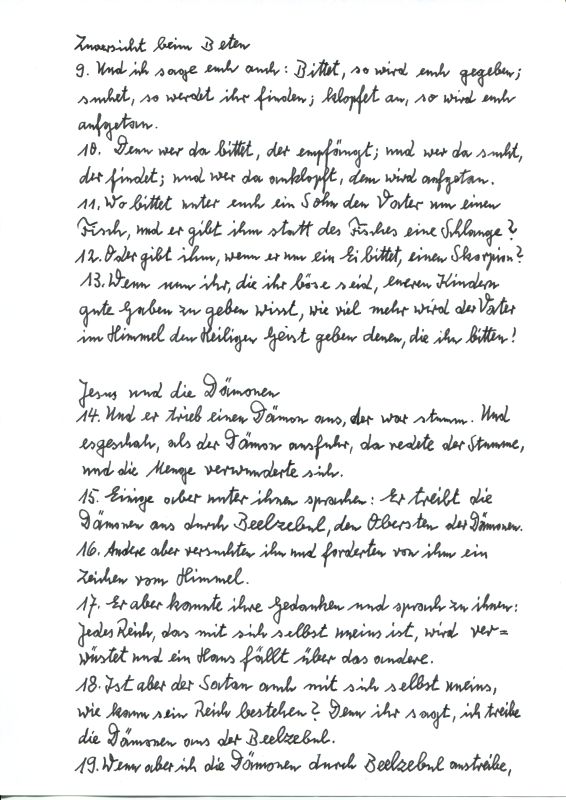 Zuversicht beim Beten
9. Und ich sage euch auch: Bittet, so wird euch gegeben;
suchet, so werdet ihr finden; klopfet an, so wird euch
aufgetan.
10. Denn wer da bittet, der empfängt; und wer da sucht,
der findet; und wer da anklopft, dem wird aufgetan.
11. Wo bittet unter euch ein Sohn den Vater um einen
Fisch, und er gibt ihm statt des Fisches eine Schlange?
12. Oder gibt ihm, wenn er um ein Ei bittet, einen Skorpion?
13. Wenn nun ihr, die ihr böse seid, eueren Kindern
gute Gaben zu geben wisst, wie viel mehr wird der Vater
im Himmel den Heiligen Geist geben denen, die ihn bitten!
Jesus und die Dämonen
14. Und er trieb einen Dämon aus, der war stumm. Und
es geschah, als der Dämon ausfuhr, da redete der Stumme,
und die Menge verwunderte sich.
15. Einige aber unter ihnen sprachen: Er treibt die
Dämonen aus durch Beelzebul, den Obersten der Dämonen.
16. Andere aber versuchten ihn und forderten von ihm ein
Zeichen vom Himmel.
17. Er aber kannte ihre Gedanken und sprach zu ihnen:
Jedes Reich, das mit sich selbst uneins ist, wird ver=
wüstet und ein Haus fällt über das andere.
18. Ist aber der Satan auch mit sich selbst uneins,
wie kann sein Reich bestehen? Denn ihr sagt, ich treibe
die Dämonen aus der Beelzebul.
19. Wenn aber ich die Dämonen durch Beelzebul austreibe,